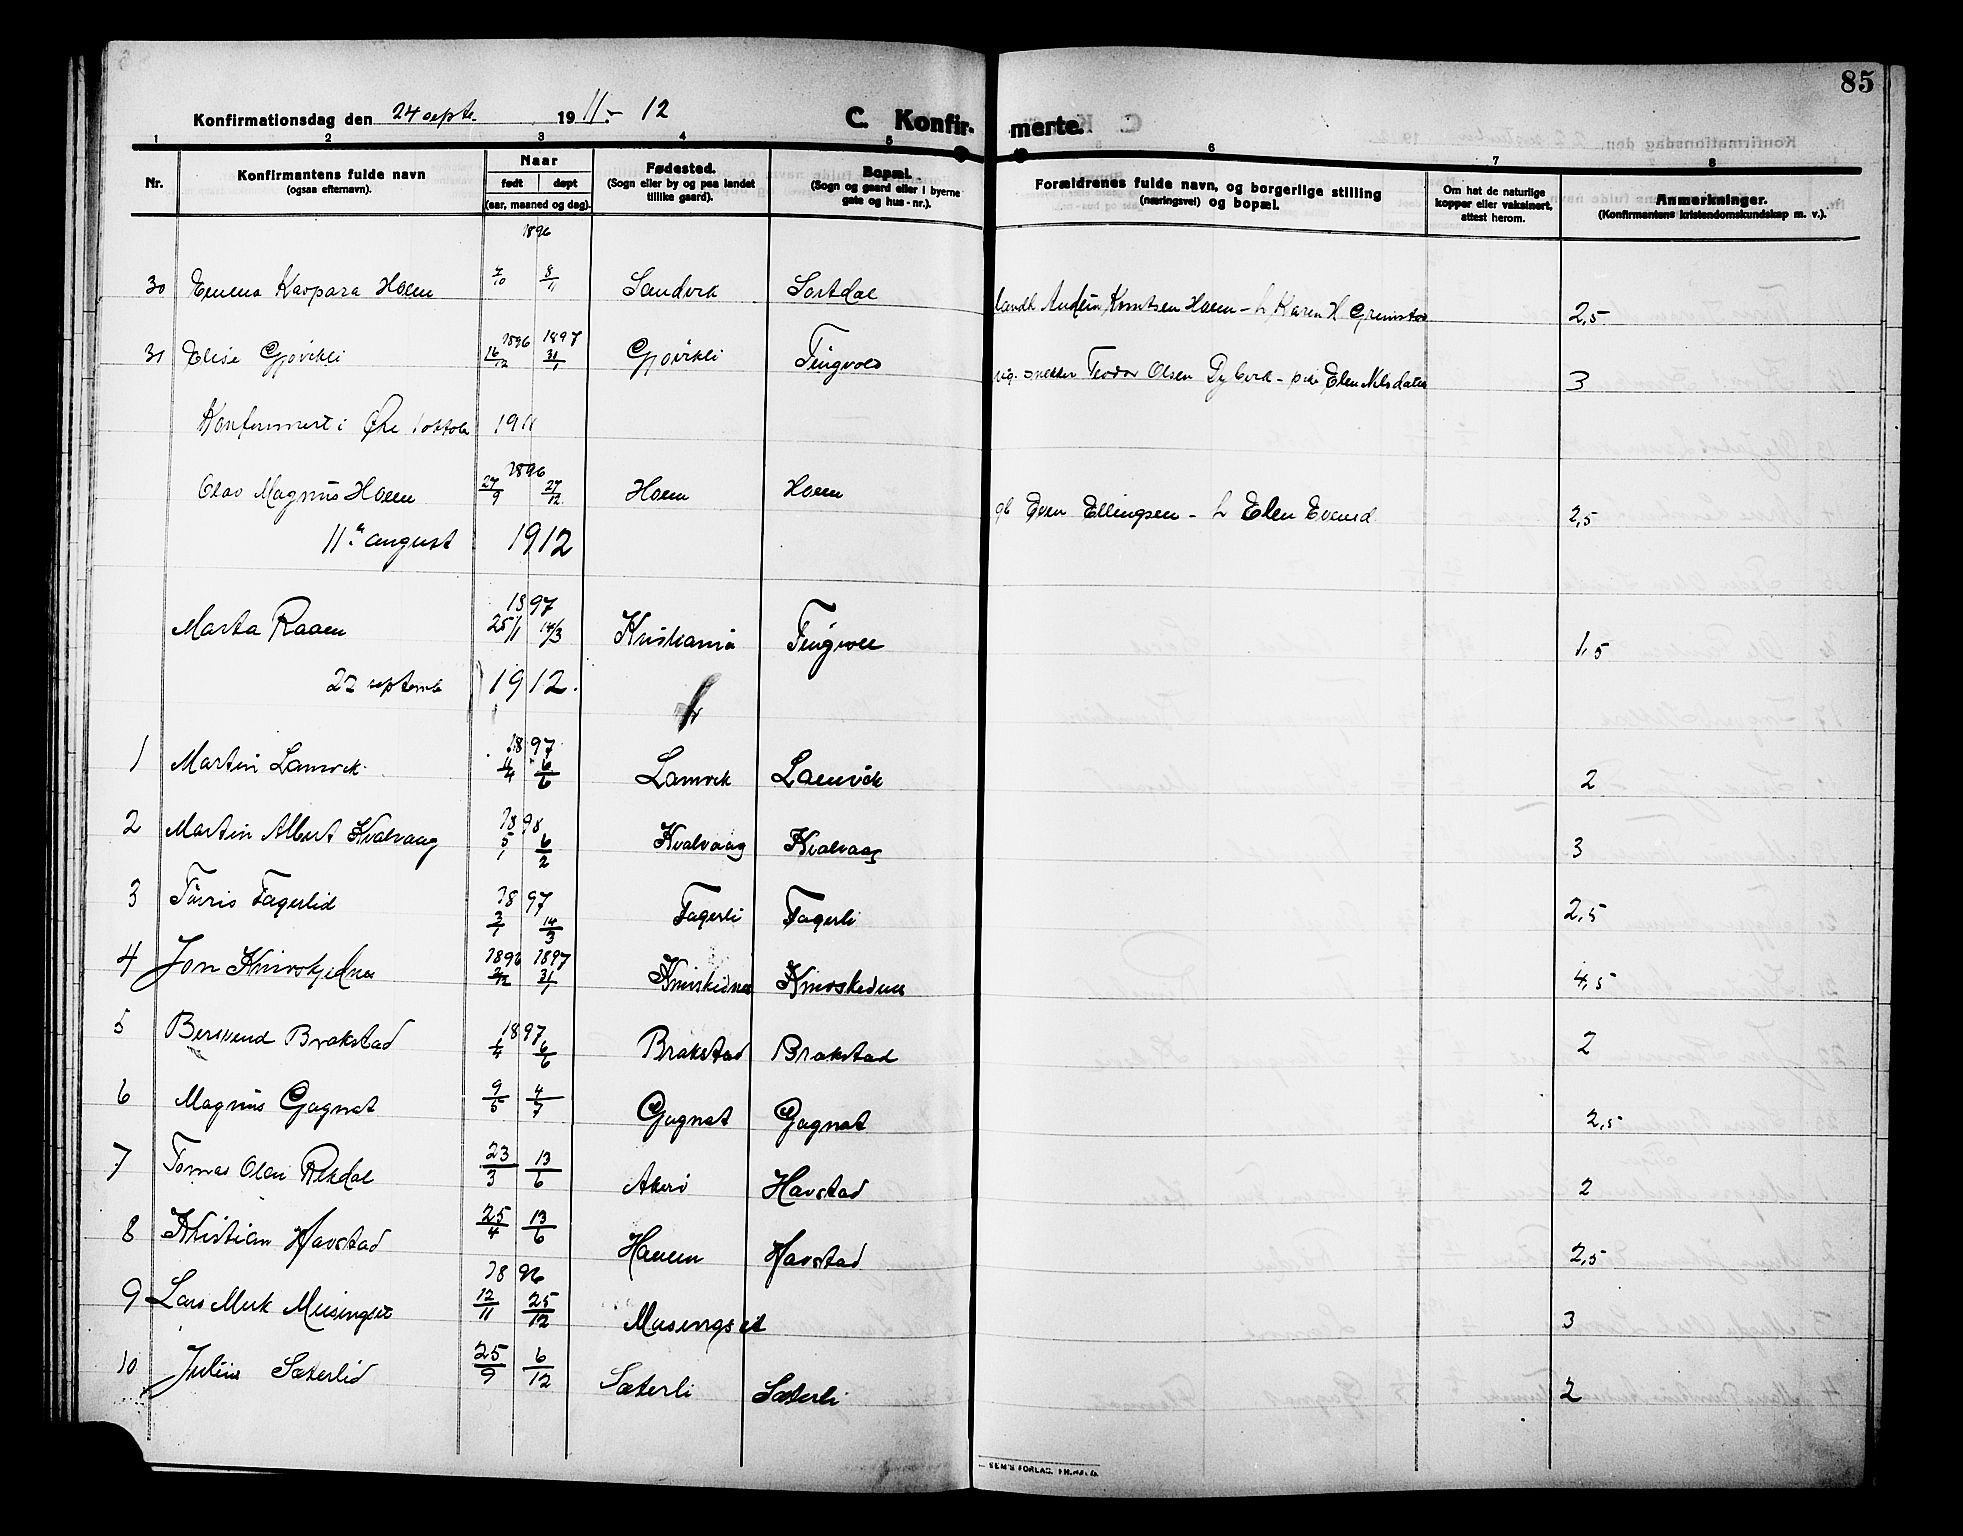 85
Konfirmationsdag den 24 septr. 1911 - 12
C. Konfirmerte.
1 2 3 4 5 6 7 8
Nr. Konfirmantens fulde navn (ogsaa efternavn). Naar født døpt (aar, maaned og dag). Fødested. (Sogn eller by og paa landet tillike gaard). Bopæl. (Sogn og gaard eller i byerne gate og hus-nr.). Forældrenes fulde navn, og borgerlige stilling (næringsvei) og bopæl. Om hat de naturlige kopper eller vaksinert, attest herom. Anmerkninger. (Konfirmantens kristendomskundskap m. v.).
1896
30 Emma Kaspara Hoem 7/10 8/11 Sandvik Sortdal Knutsen Hoem - h Karen H Grimstad 2,5
1896 1897
31 Elise Gjøvikli 16/12 31/1 Gjøvikli Tingvold snekker Teodor Olsen - Elen Nilsdatter 3
Konfirmert i Øre 1 oktob 1911
1896
Olav Magnus Hoem 27/9 27/12 Hoem Hoem Even Ellingsen - h Elen Evensd 2,5
11te august 1912
1897
Marta Raaen 25/1 14/3 Kristiania Tingvoll 1,5
22 septemb 1912.
1897
1 Martin Lamvik 11/4 6/6 Lamvik Lamvik 2
1898
2 Martin Albert Kvalvaag 5/1 6/2 Kvalvaag Kvalvaag 3
1897
3 Tøris Fagerlid 3/1 14/3 Fagerli Fagerli 2,5
1896 1897
4 Jon Knivskjedna 31/1 Knivskedna Knivskedna 4,5
1897
5 Bersvend Brakstad 1/4 6/6 Brakstad Brakstad 2
6 Magnus Gagnat 9/5 4/7 Gagnat Gagnat 2,5
7 Tomas Olai Rekdal 23/3 13/6 Akerø Havstad 2
8 Kristian Havstad 25/4 13/6 Havstad 2,5
1896
9 Lars Meek Meisingset 12/11 25/12 Meisingset 3
10 Julius Sæterlid 25/9 6/12 Sæterli Sæterli 2
SEM'S FORLAG